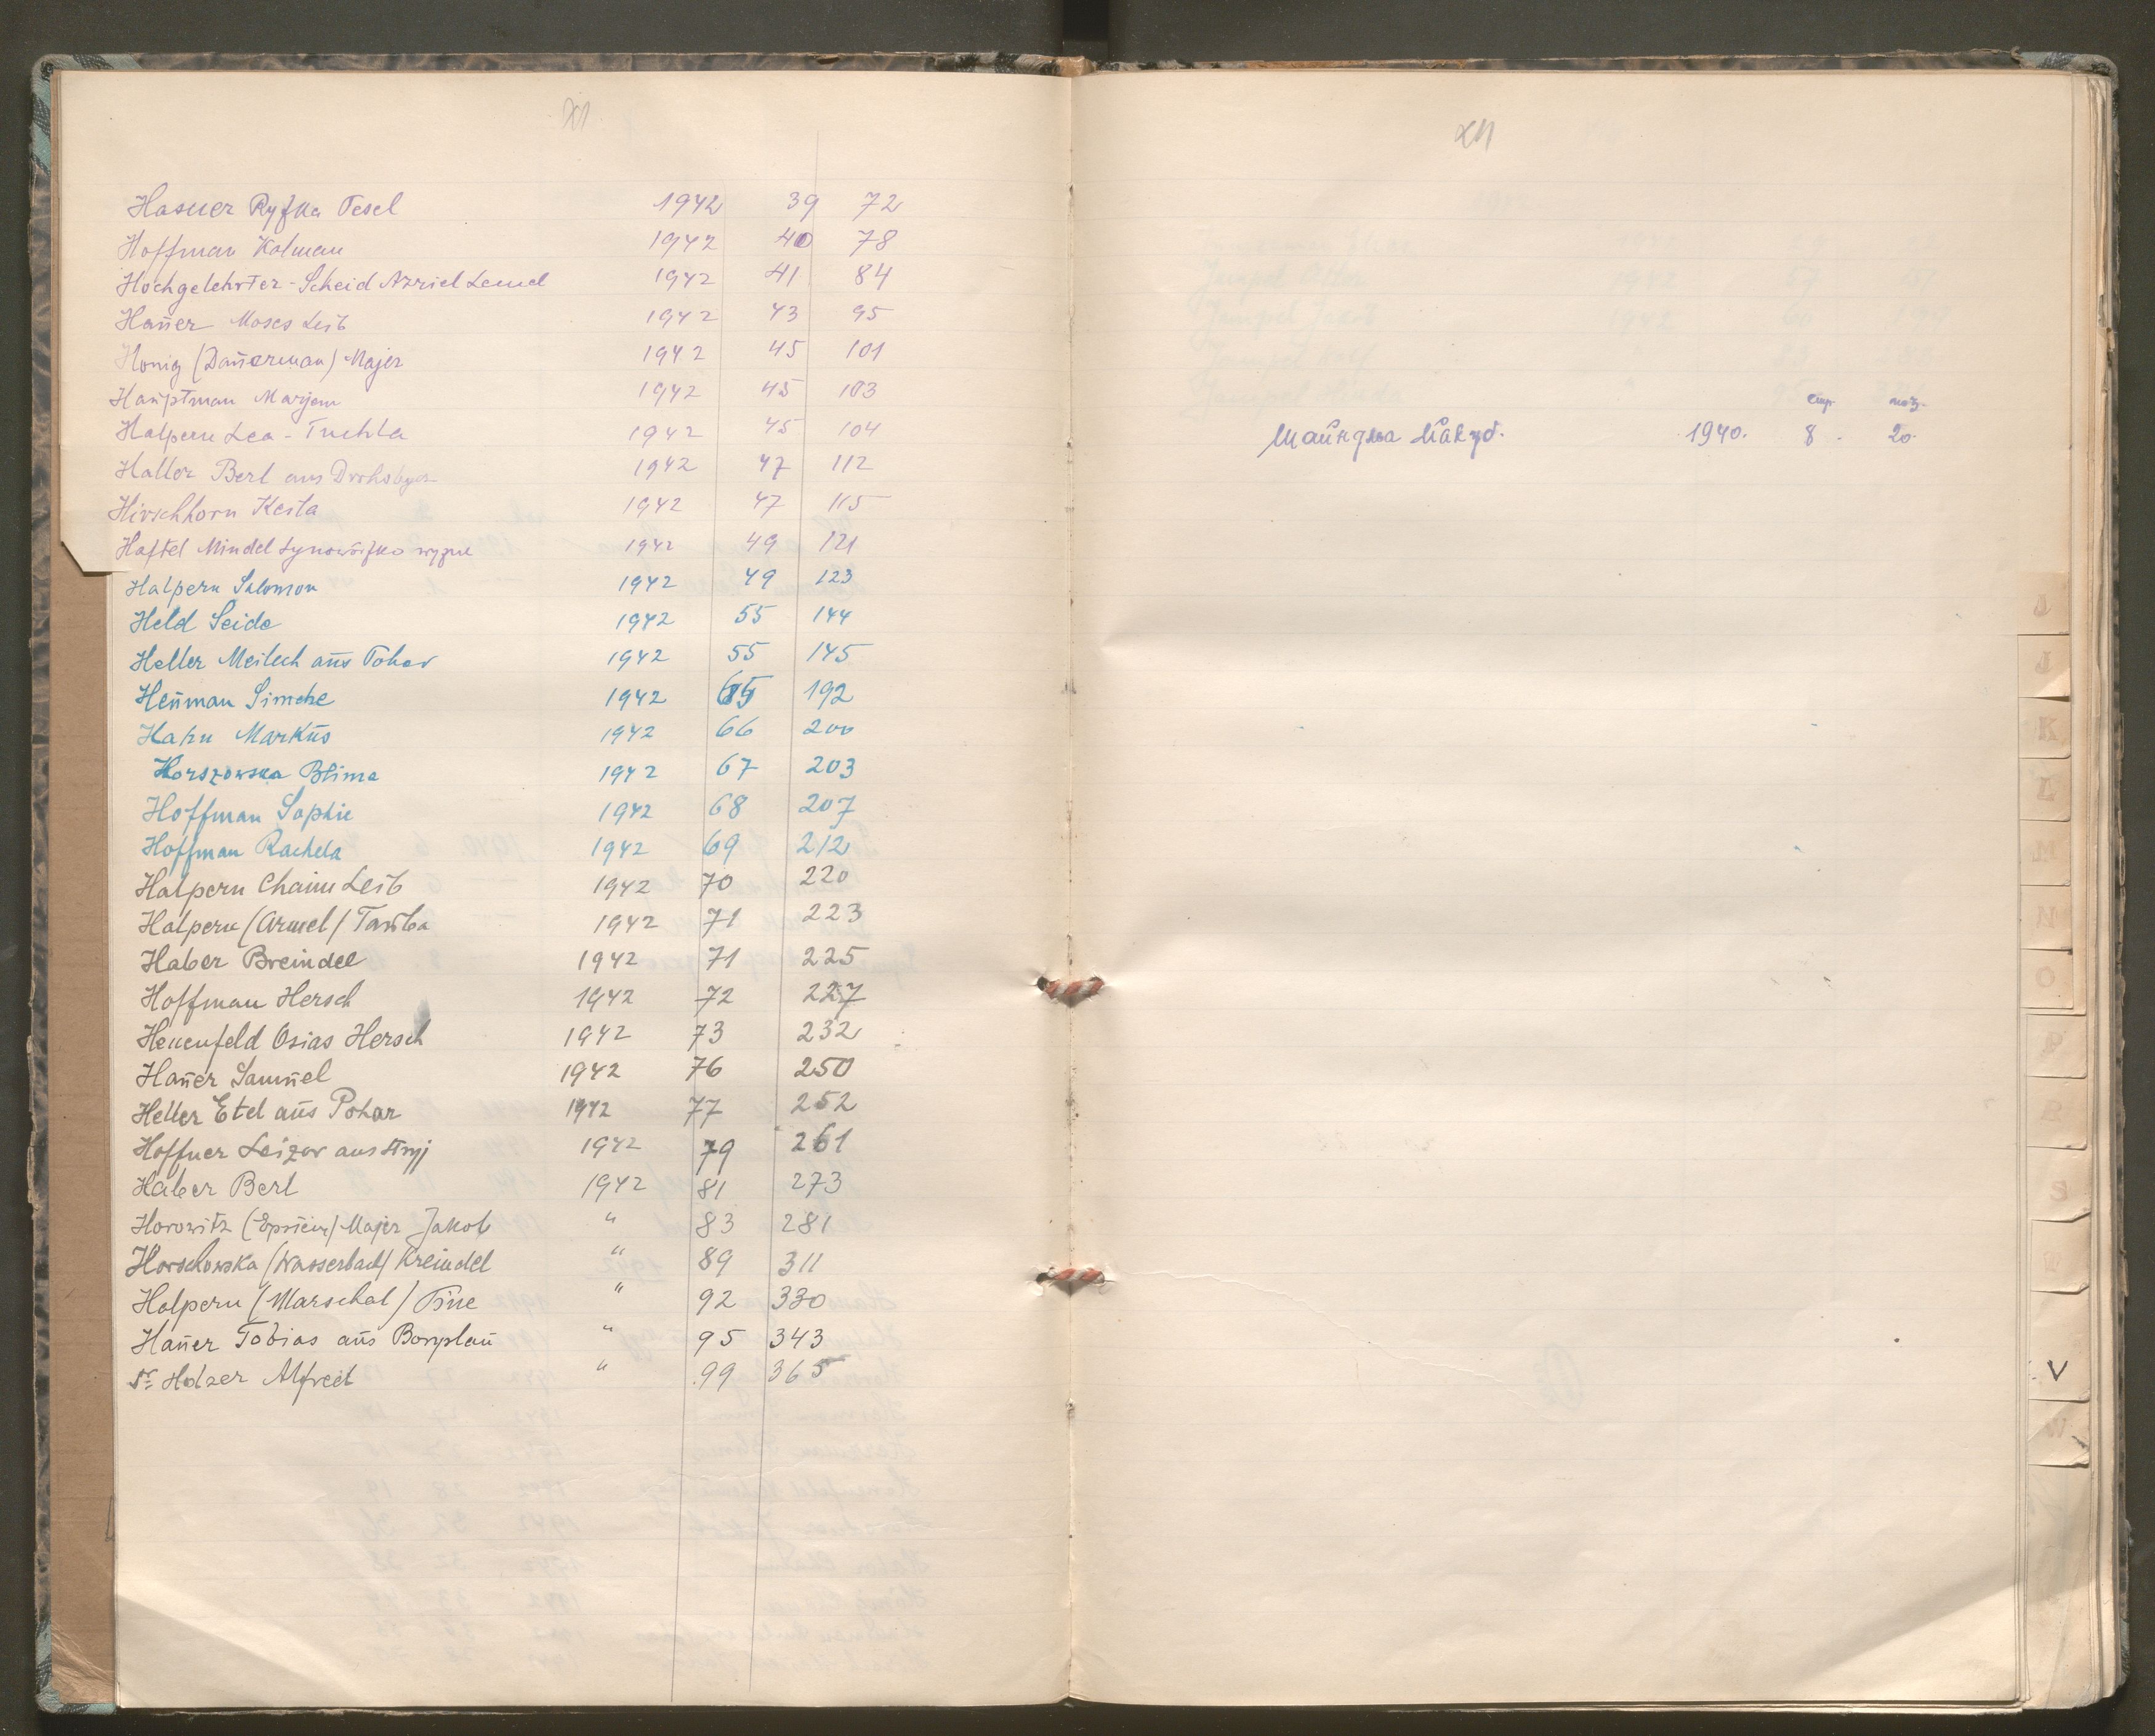 XI
Hasner Ryfka Tesel 1942 39 72
Hoffman Kalman 1942 40 78
Hochgelehrter-Scheid Azriel Lemel 1942 41 84
Haŭer Moses Leib 1942 43 95
Honig (Daŭerman) Majer 1942 45 101
Haŭptman Marjem 1942 45 103
Halpern Lea - Tuchla 1942 45 104
Haller Berl aus 1942 47 112
Hirschhorn Keila 1942 47 115
Haftel Mindel 1942 49 121
Halpern Salomon 1942 49 123
Held Seide 1942 55 144
Heller Meilech aŭs 1942 55 145
Heŭman Simche 1942 65 192
Hahn Markŭs 1942 66 200
Horszowska Blima 1942 67 203
Hoffman Sophie 1942 68 207
Hoffman Rachela 1942 69 212
Halpern Chaim Leib 1942 70 220
Halpern (Armel) Taŭba 1942 71 223
Haber Breindel 1942 71 225
Hoffman Hersch 1942 72 227
Hellenfeld Osias Hersch 1942 73 232
Haŭer Samŭel 1942 76 250
Heller Etel aŭs Pohar 1942 77 252
Hoffner Leizor aus Stryj 1942 79 261
Haber Berl 1942 81 273
Horowitz (Epstein) Majer Jakob " 83 281
Horschowska (Wasserbach) Kreindel " 89 311
Halpern (Marschal) Tine " 92 330
Haŭer Tobias aŭs Boryslaŭ " 95 343
Holzer Alfred " 99 365
XII
стр. поз.
Майндля Йакуб. 1940. 8. 20.
J
K
L
M
N
O
P
R
S
V
W